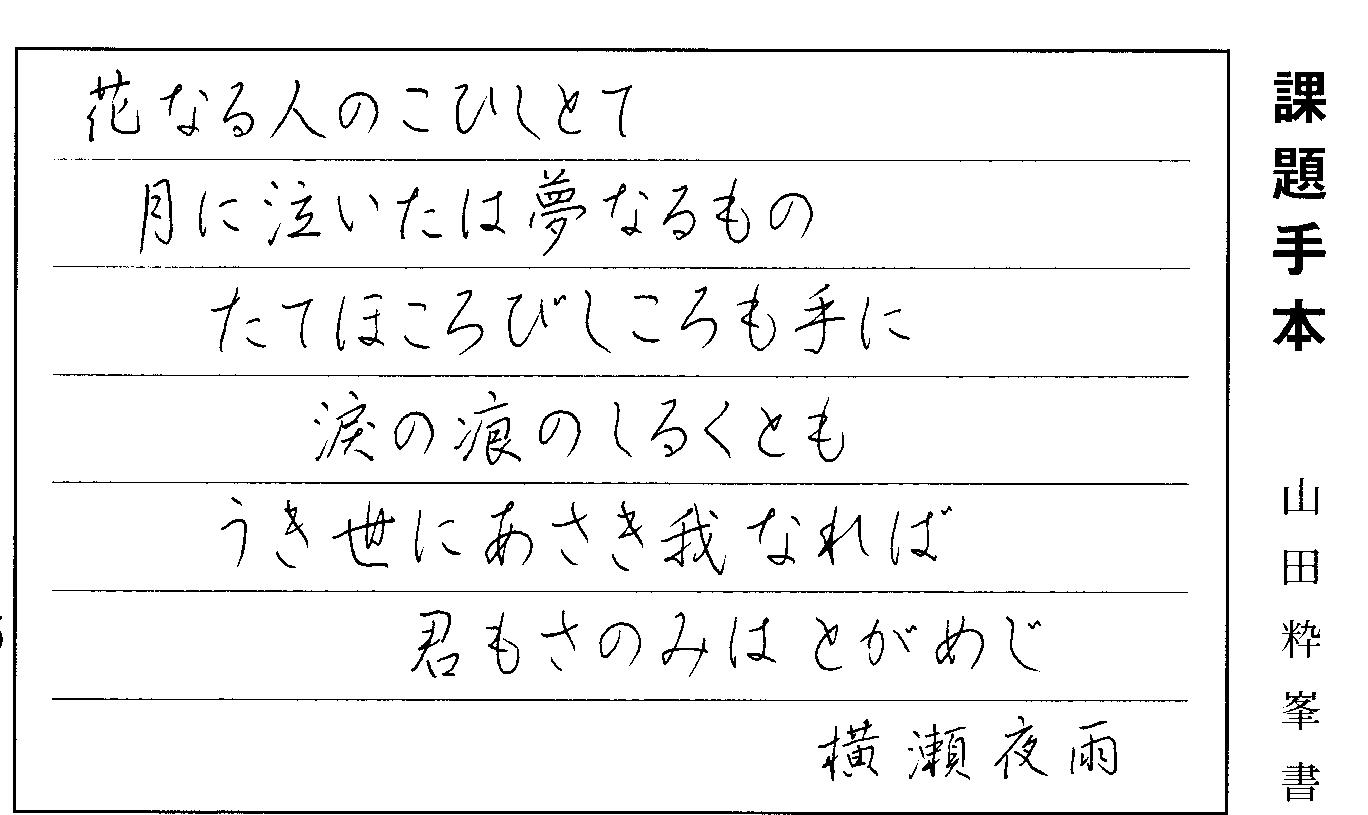 課題手本 山田粋峯書
花なる人のこひしとて
月に泣いたは夢なるもの
たてほころびしころも手に
涙の痕のしるくとも
うき世にあさき我なれば
君もさのみはとがめじ
横瀬夜雨